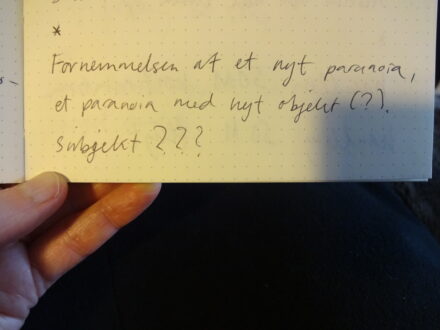 *
Fornemmelsen af et nyt paranoia,
et paranoia med nyt objekt (?).
Subjekt ???